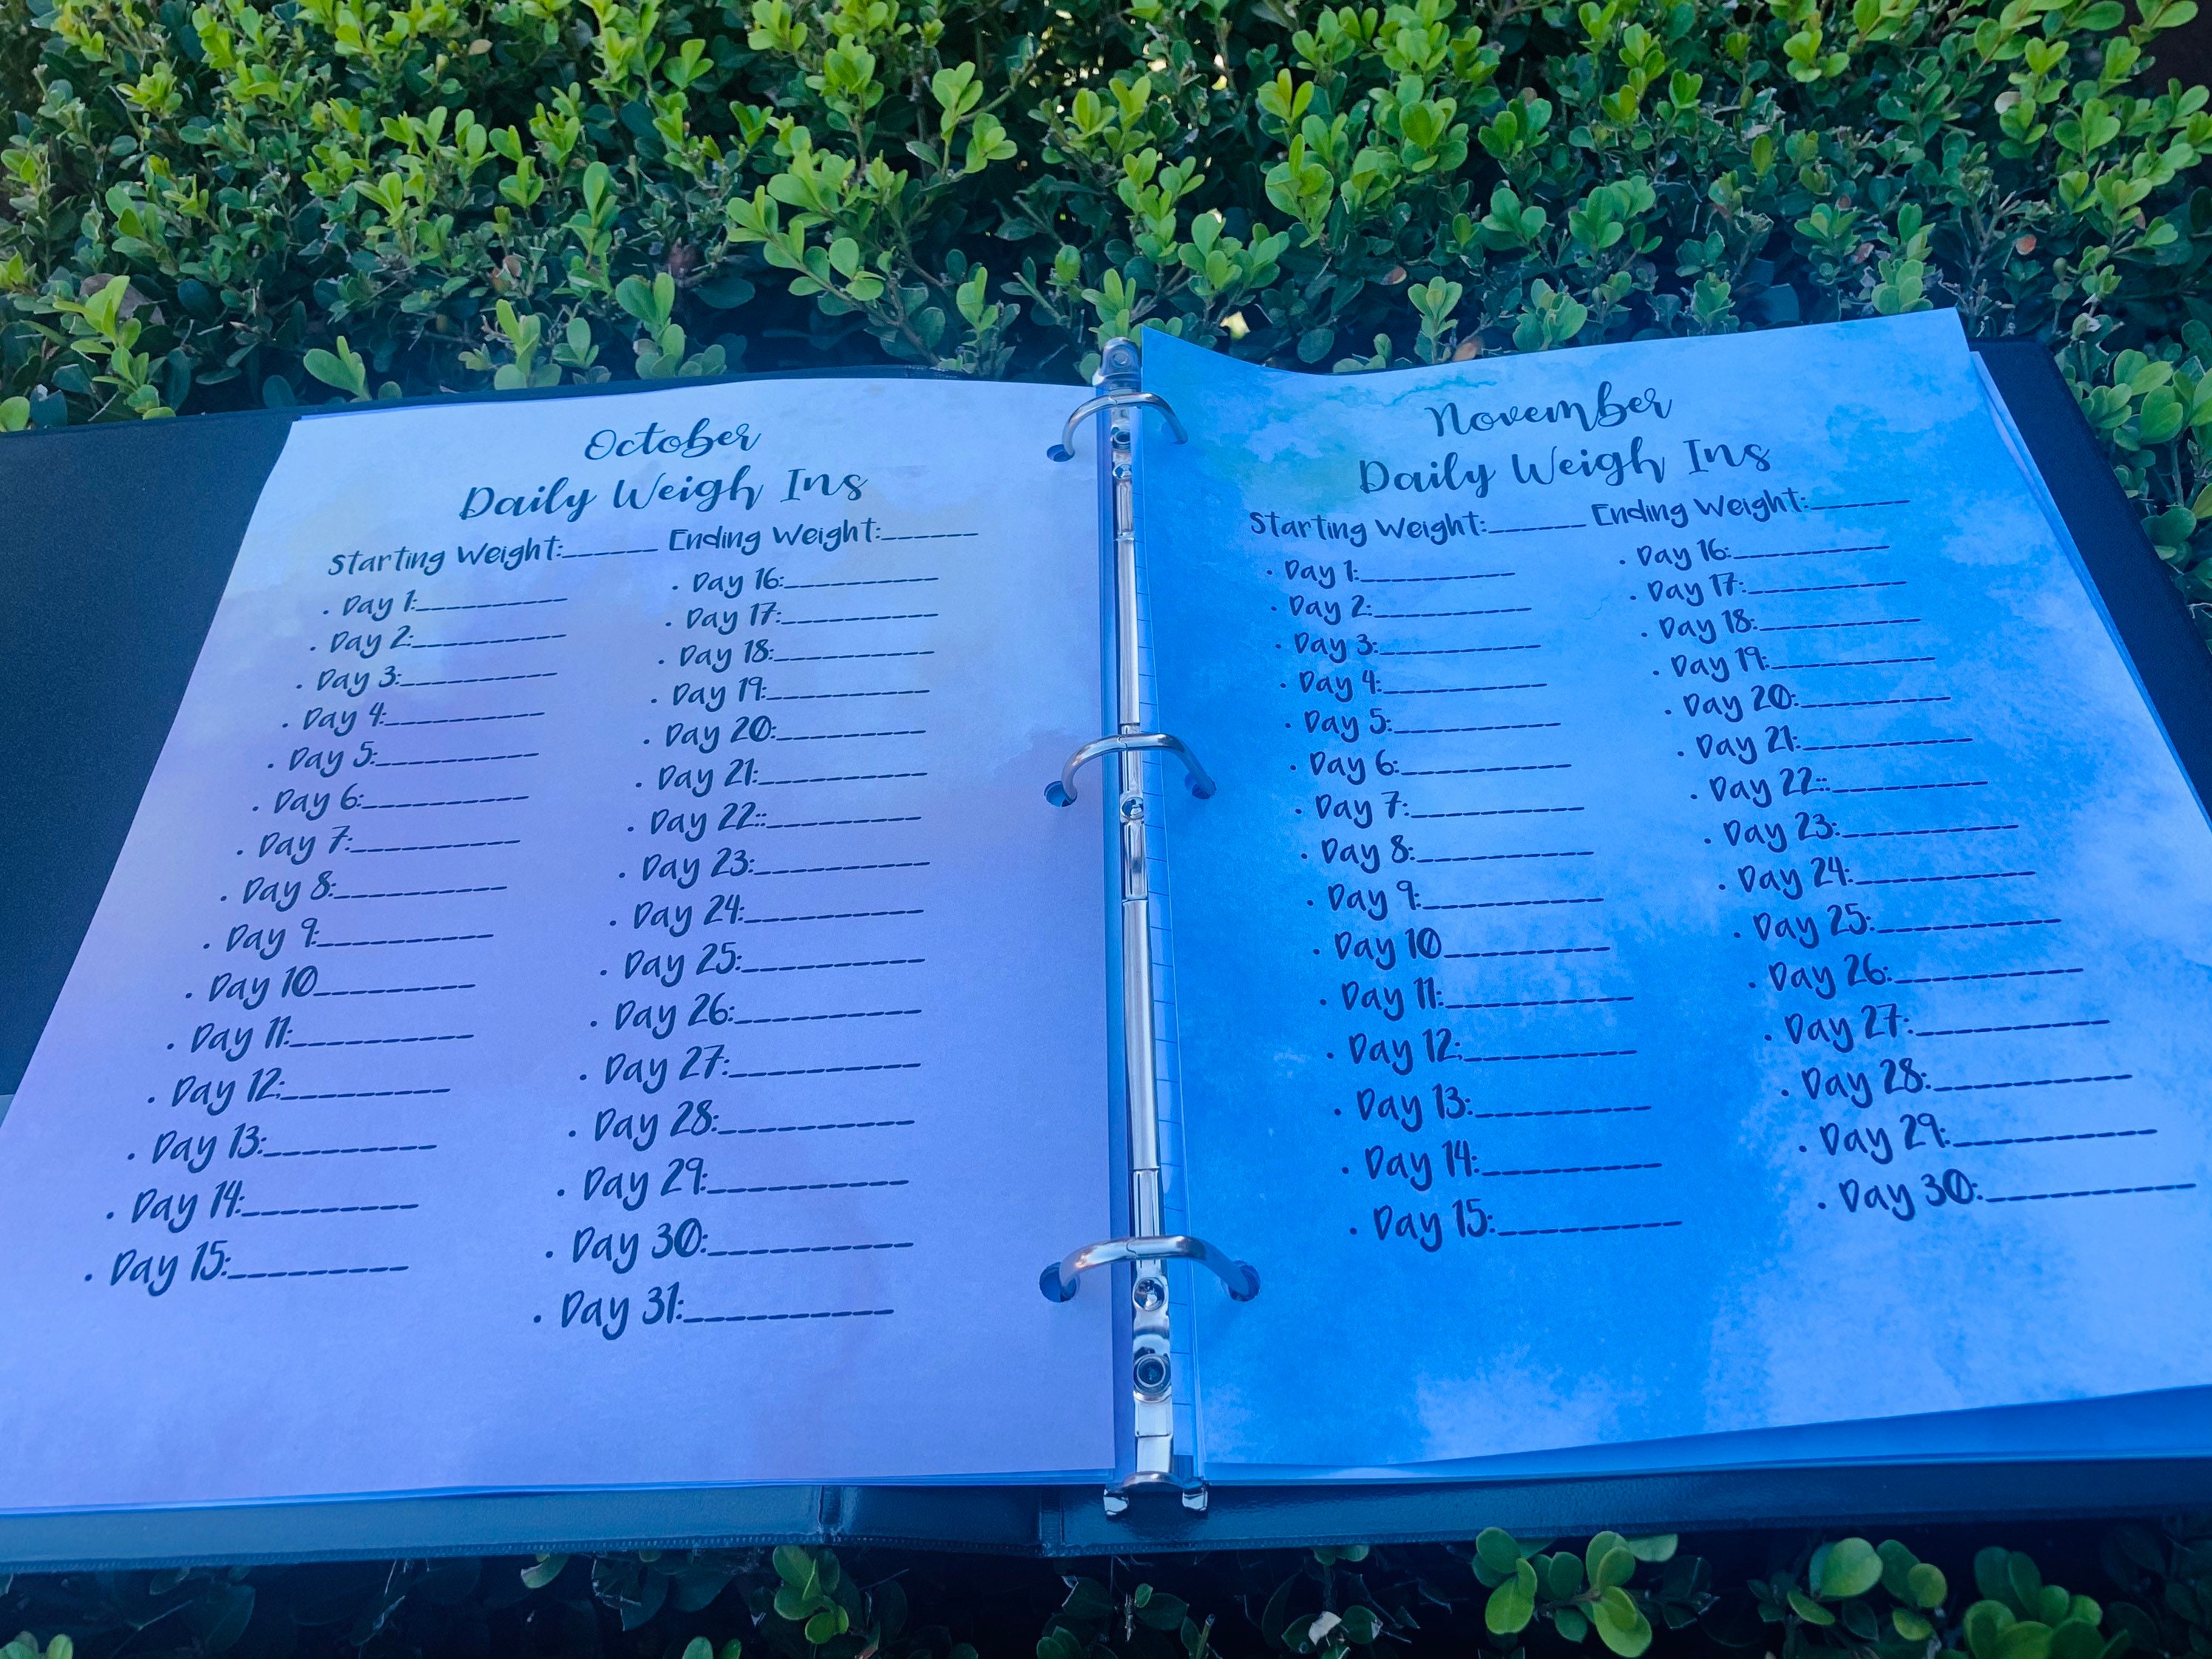 October
Daily Weigh Ins
Starting Weight:______ Ending Weight:______
· Day 1:_________
· Day 2:_________
· Day 3:_________
· Day 4:_________
· Day 5:_________
· Day 6:_________
· Day 7:_________
· Day 8:_________
· Day 9:_________
· Day 10_________
· Day 11:_________
· Day 12:_________
· Day 13:_________
· Day 14:_________
· Day 15:_________
· Day 16:_________
· Day 17:_________
· Day 18:_________
· Day 19:_________
· Day 20:_________
· Day 21:_________
· Day 22::_________
· Day 23:_________
· Day 24:_________
· Day 25:_________
· Day 26:_________
· Day 27:_________
· Day 28:_________
· Day 29:_________
· Day 30:_________
· Day 31:_________
November
Daily Weigh Ins
Starting Weight:______ Ending Weight:______
· Day 1:_________
· Day 2:_________
· Day 3:_________
· Day 4:_________
· Day 5:_________
· Day 6:_________
· Day 7:_________
· Day 8:_________
· Day 9:_________
· Day 10_________
· Day 11:_________
· Day 12:_________
· Day 13:_________
· Day 14:_________
· Day 15:_________
· Day 16:_________
· Day 17:_________
· Day 18:_________
· Day 19:_________
· Day 20:_________
· Day 21:_________
· Day 22::_________
· Day 23:_________
· Day 24:_________
· Day 25:_________
· Day 26:_________
· Day 27:_________
· Day 28:_________
· Day 29:_________
· Day 30:_________